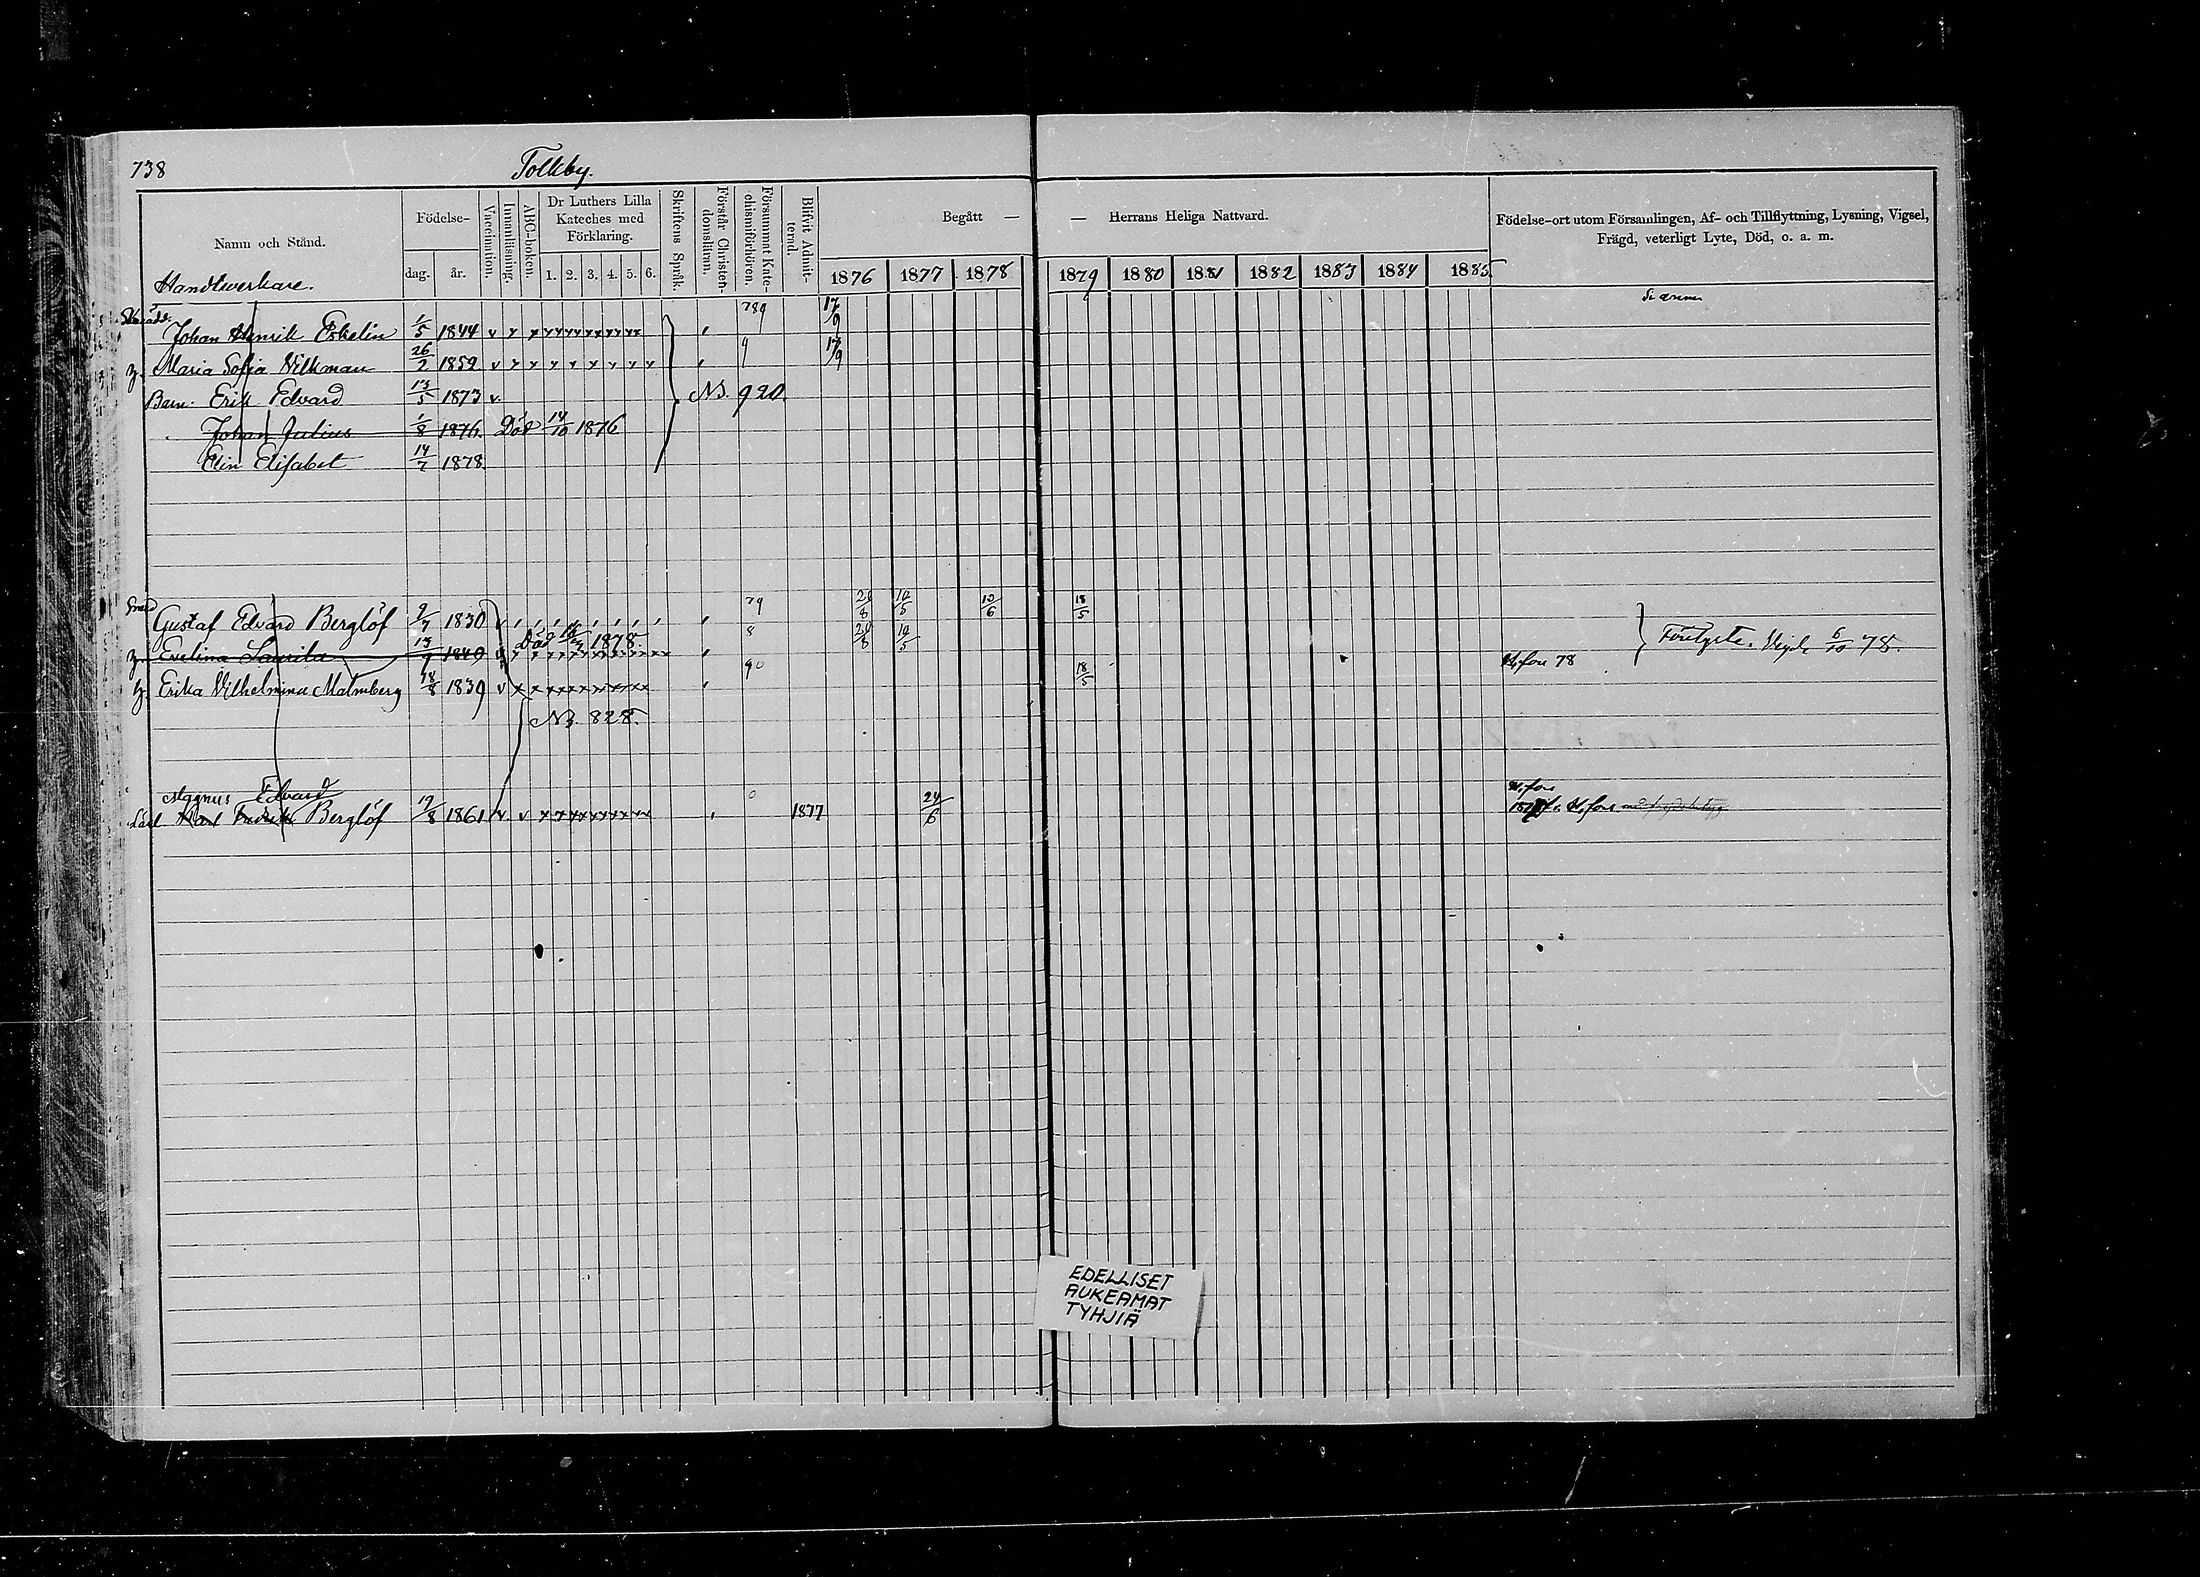 738
Tolkby.
Namn och Stånd.
Födelse-
dag.
år.
Vaccination.
Innanläsning.
ABC-boken.
Dr Luthers Lilla
Kateches med
Förklaring.
1. 2. 3. 4. 5. 6.
Skriftens Språk.
Förstår Christen-
domsläran.
Försummat Kate-
chismiförhören.
Blifvit Admit-
terad.
Begått —
— Herrans Heliga Nattvard.
1876 1877 1878 1879 1880 1881 1882 1883 1884 1885
Födelse-ort utom Församlingen, Af- och Tillflyttning, Lysning, Vigsel,
Frägd, veterligt Lyte, Död, o. a. m.
Handtverkare.
Johan Henrik Eskelin 1/5 1844 789 17/9
Maria Sofia Vilkman 26/2 1852 9 17/9
Barn. Erik Edvard 13/5 1873 v. N3. 920.
Johan Julius 1/8 1876. Död 14/10 1876
Elin Elisabet 14/7 1878
Smed
Gustaf Edvard Berglöf 9/7 1830 79 20/8 10/5 10/6 18/5
Död 1878.
h. Evelina Laurila 13/9 1840 8 20/8 10/5
Vigde 6/10 78.
H,fors 78
h. Erika Vilhelmina Malmberg 18/8 1839 90 18/5
N3. 828.
Magnus Edvard
Lärl Karl Fredrik Berglöf 17/8 1861 0 1877 24/6
H,fors
EDELLISET
AUKEAMAT
TYHJIÄ